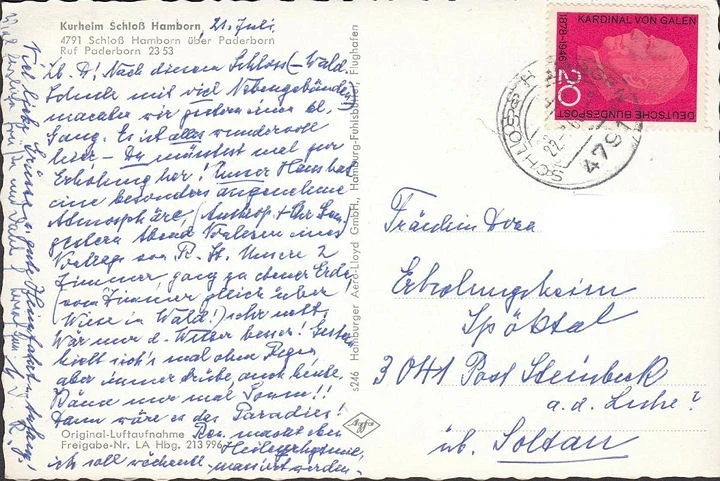 Kurheim Schloß Hamborn, 21. Juli.
4791 Schloß Hamborn über Paderborn
Ruf Paderborn 23 53
Lb. H! Nach diesem Schloss (– Wald-
Schule mit viel Nebengebäuden)
machten wir gestern einen kl.
Gang. Es ist alles wundervoll
hier – Du müsstest mal zur
Erholung her! Unser Haus hat
eine besonders angenehme
Atmosphäre,
gestern Abend Vorlesen eines
Vortrags von R. St. Unsere 2
Zimmer, ganz zu ebener Erde,
(vom Zimmer gleich über
Wiese in Wald!) sehr nett,
Wär nur d. Wetter besser! Gestern
hielt sich's mal ohne Regen,
aber immer trübe, auch heute.
Käme nur mal Sonne!!
Dann wäre es das Paradies!
macht eben
Heileurythmie,
ich soll wöchentl. massiert werden.
Original-Luftaufnahme
Freigabe-Nr. LA Hbg. 213 996
Viel liebe Grüsse, gute
s246 Hamburger Aero-Lloyd GmbH., Hamburg-Fuhlsbüttel, Flughafen
Agfa
KARDINAL VON GALEN
1878-1946
20
DEUTSCHE BUNDESPOST
SCHLOSS HAMBORN
4791
Fräulein Dora
Erholungsheim
Spöktal
3041 Post Steinbeck
a. d. Luhe?
üb. Soltau